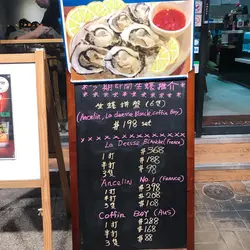 ★今期即開生蠔推介★
生蠔拼盤 (6隻)
(Ancelin, La deesse Blanche, Coffin Bay)
$198 set
La Deesse Blanche (France)
1打 $368
半打 $188
3隻 $98
Ancelin No.1 (France)
1打 $398
半打 $208
3隻 $108
Coffin Bay (Aus)
1打 $288
半打 $168
3隻 $88